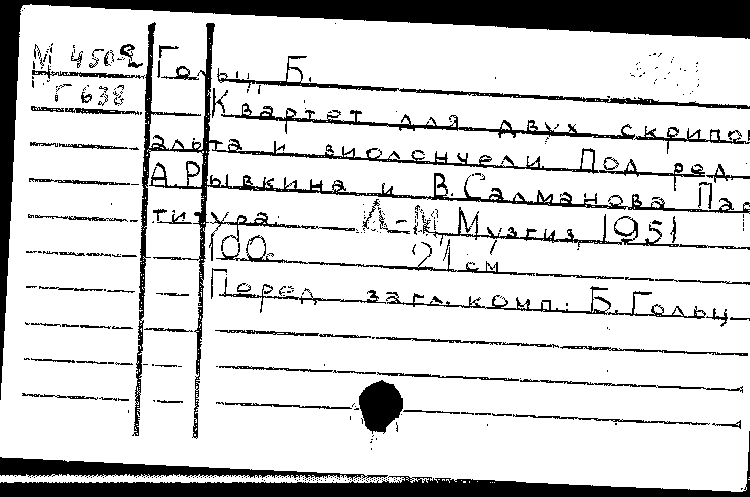 М 450-2
Г 638
Гольц, Б.
Квартет для двух скрипок
альта и виолончели Под ред.
А. Рывкина и В. Салманова Пар
титура. Л-М, Музгиз, 1951
100с. 21 см
Перед загл. комп.: Б. Гольц